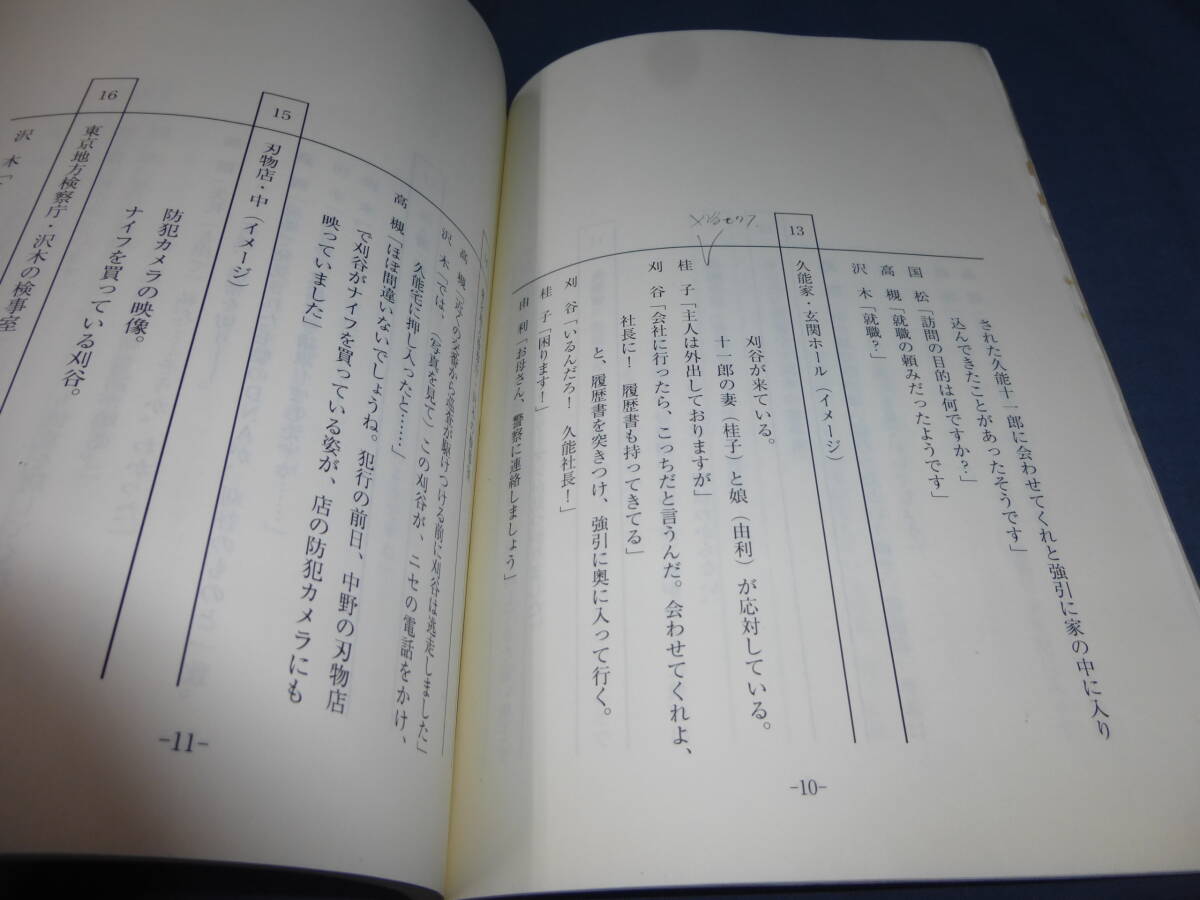 された久能十一郎に会わせてくれと強引に家の中に入り
込んできたことがあったそうです」
国松「訪問の目的は何ですか?」
高槻「就職の頼みだったようです」
沢木「就職?」
13 久能家・玄関ホール(イメージ)
刈谷が来ている。
十一郎の妻(桂子)と娘(由利)が応対している。
桂子「主人は外出しておりますが」
刈谷「会社に行ったら、こっちだと言うんだ。会わせてくれよ、
社長に! 履歴書も持ってきてる」
と、履歴書を突きつけ、強引に奥に入って行く。
刈谷「いるんだろ! 久能社長!」
桂子「困ります!」
由利「お母さん、警察に連絡しましょう」
-10-
高槻「近くの交番から巡査が駆けつける前に刈谷は逃走しました」
沢木「では、(写真を見て)この刈谷が、ニセの電話をかけ、
久能宅に押し入ったと……」
高槻「ほぼ間違いないでしょうね。犯行の前日、中野の刃物店
で刈谷がナイフを買っている姿が、店の防犯カメラにも
映っていました」
15 刃物店・中(イメージ)
防犯カメラの映像。
ナイフを買っている刈谷。
16 東京地方検察庁・沢木の検事室
沢木「
-11-